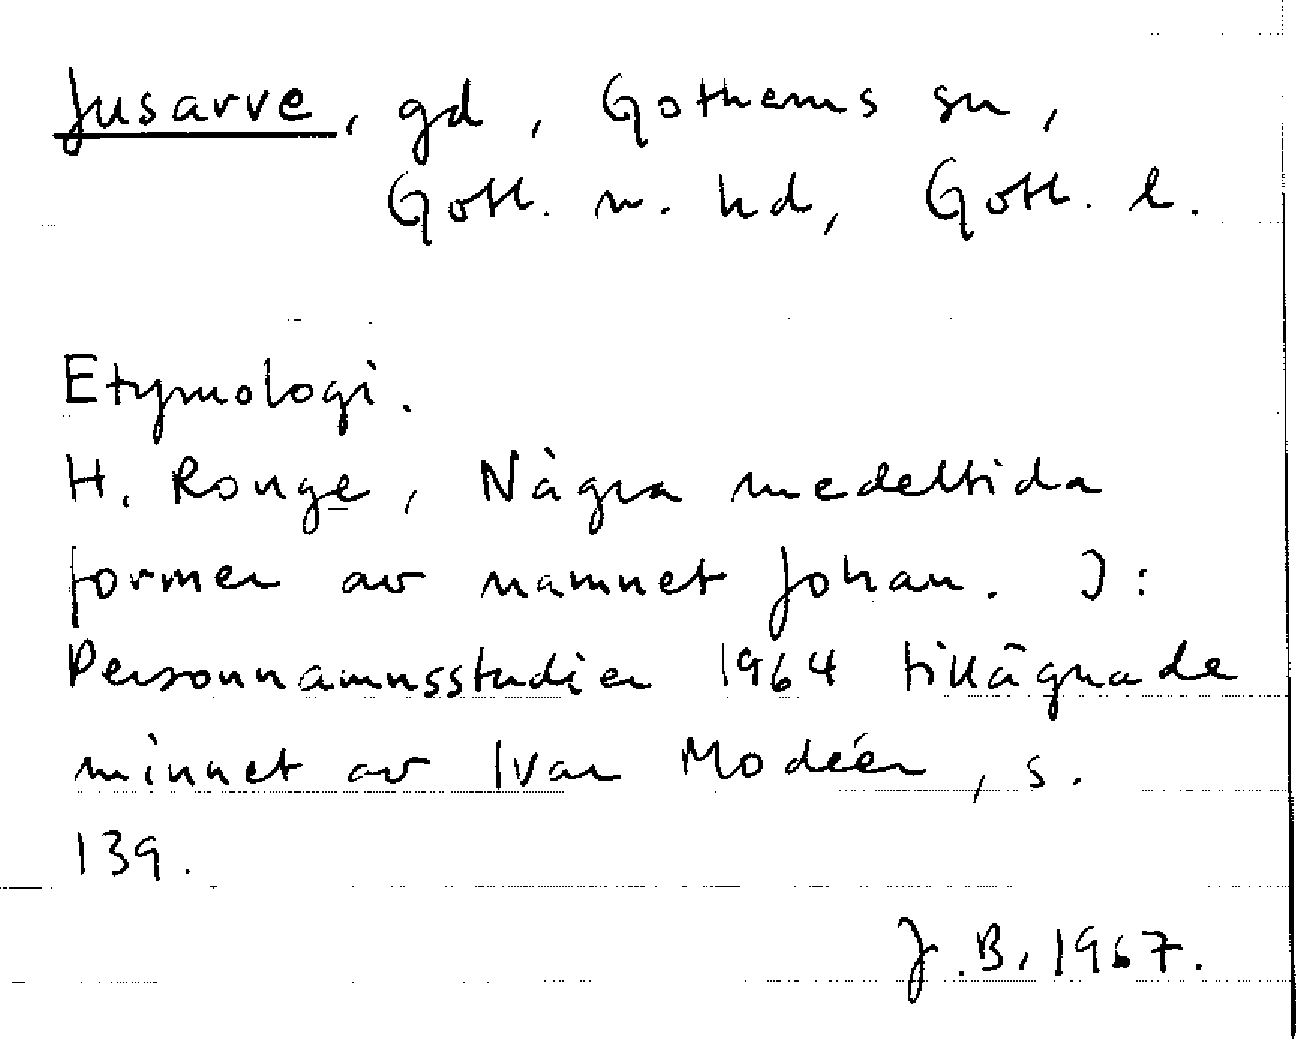 Jusarve, gd, Gothems sn,
Gotl. n. hd, Gotl. l.
Etymologi.
H. Ronge, Några medeltida
former av namnet Johan. I:
Personnamnsstudier 1964 tillägnade
minnet av Ivar Modéer, s.
139.
J.B. 1967.